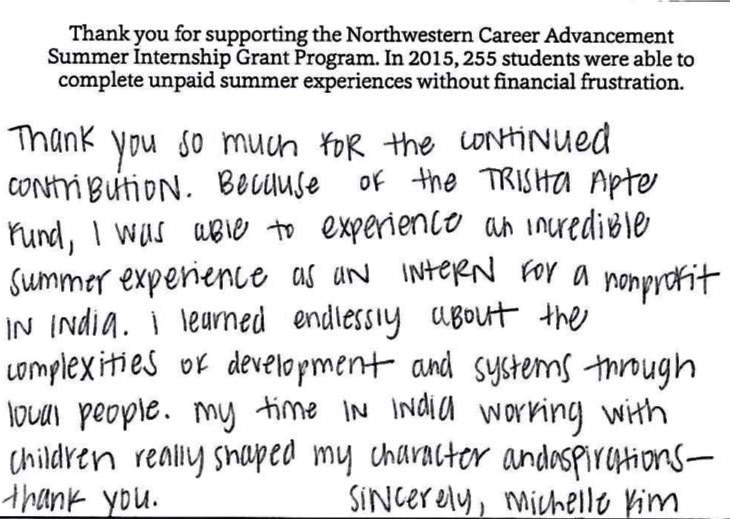 Thank you for supporting the Northwestern Career Advancement
Summer Internship Grant Program. In 2015, 255 students were able to
complete unpaid summer experiences without financial frustration.
Thank you so much for the continued
contribution. Because of the TRISHA Apte
Fund, I was able to experience an incredible
summer experience as an intern for a nonprofit
in India. I learned endlessly about the
complexities of development and systems through
local people. my time in India working with
children really shaped my character and aspirations—
thank you. Sincerely, Michelle Kim